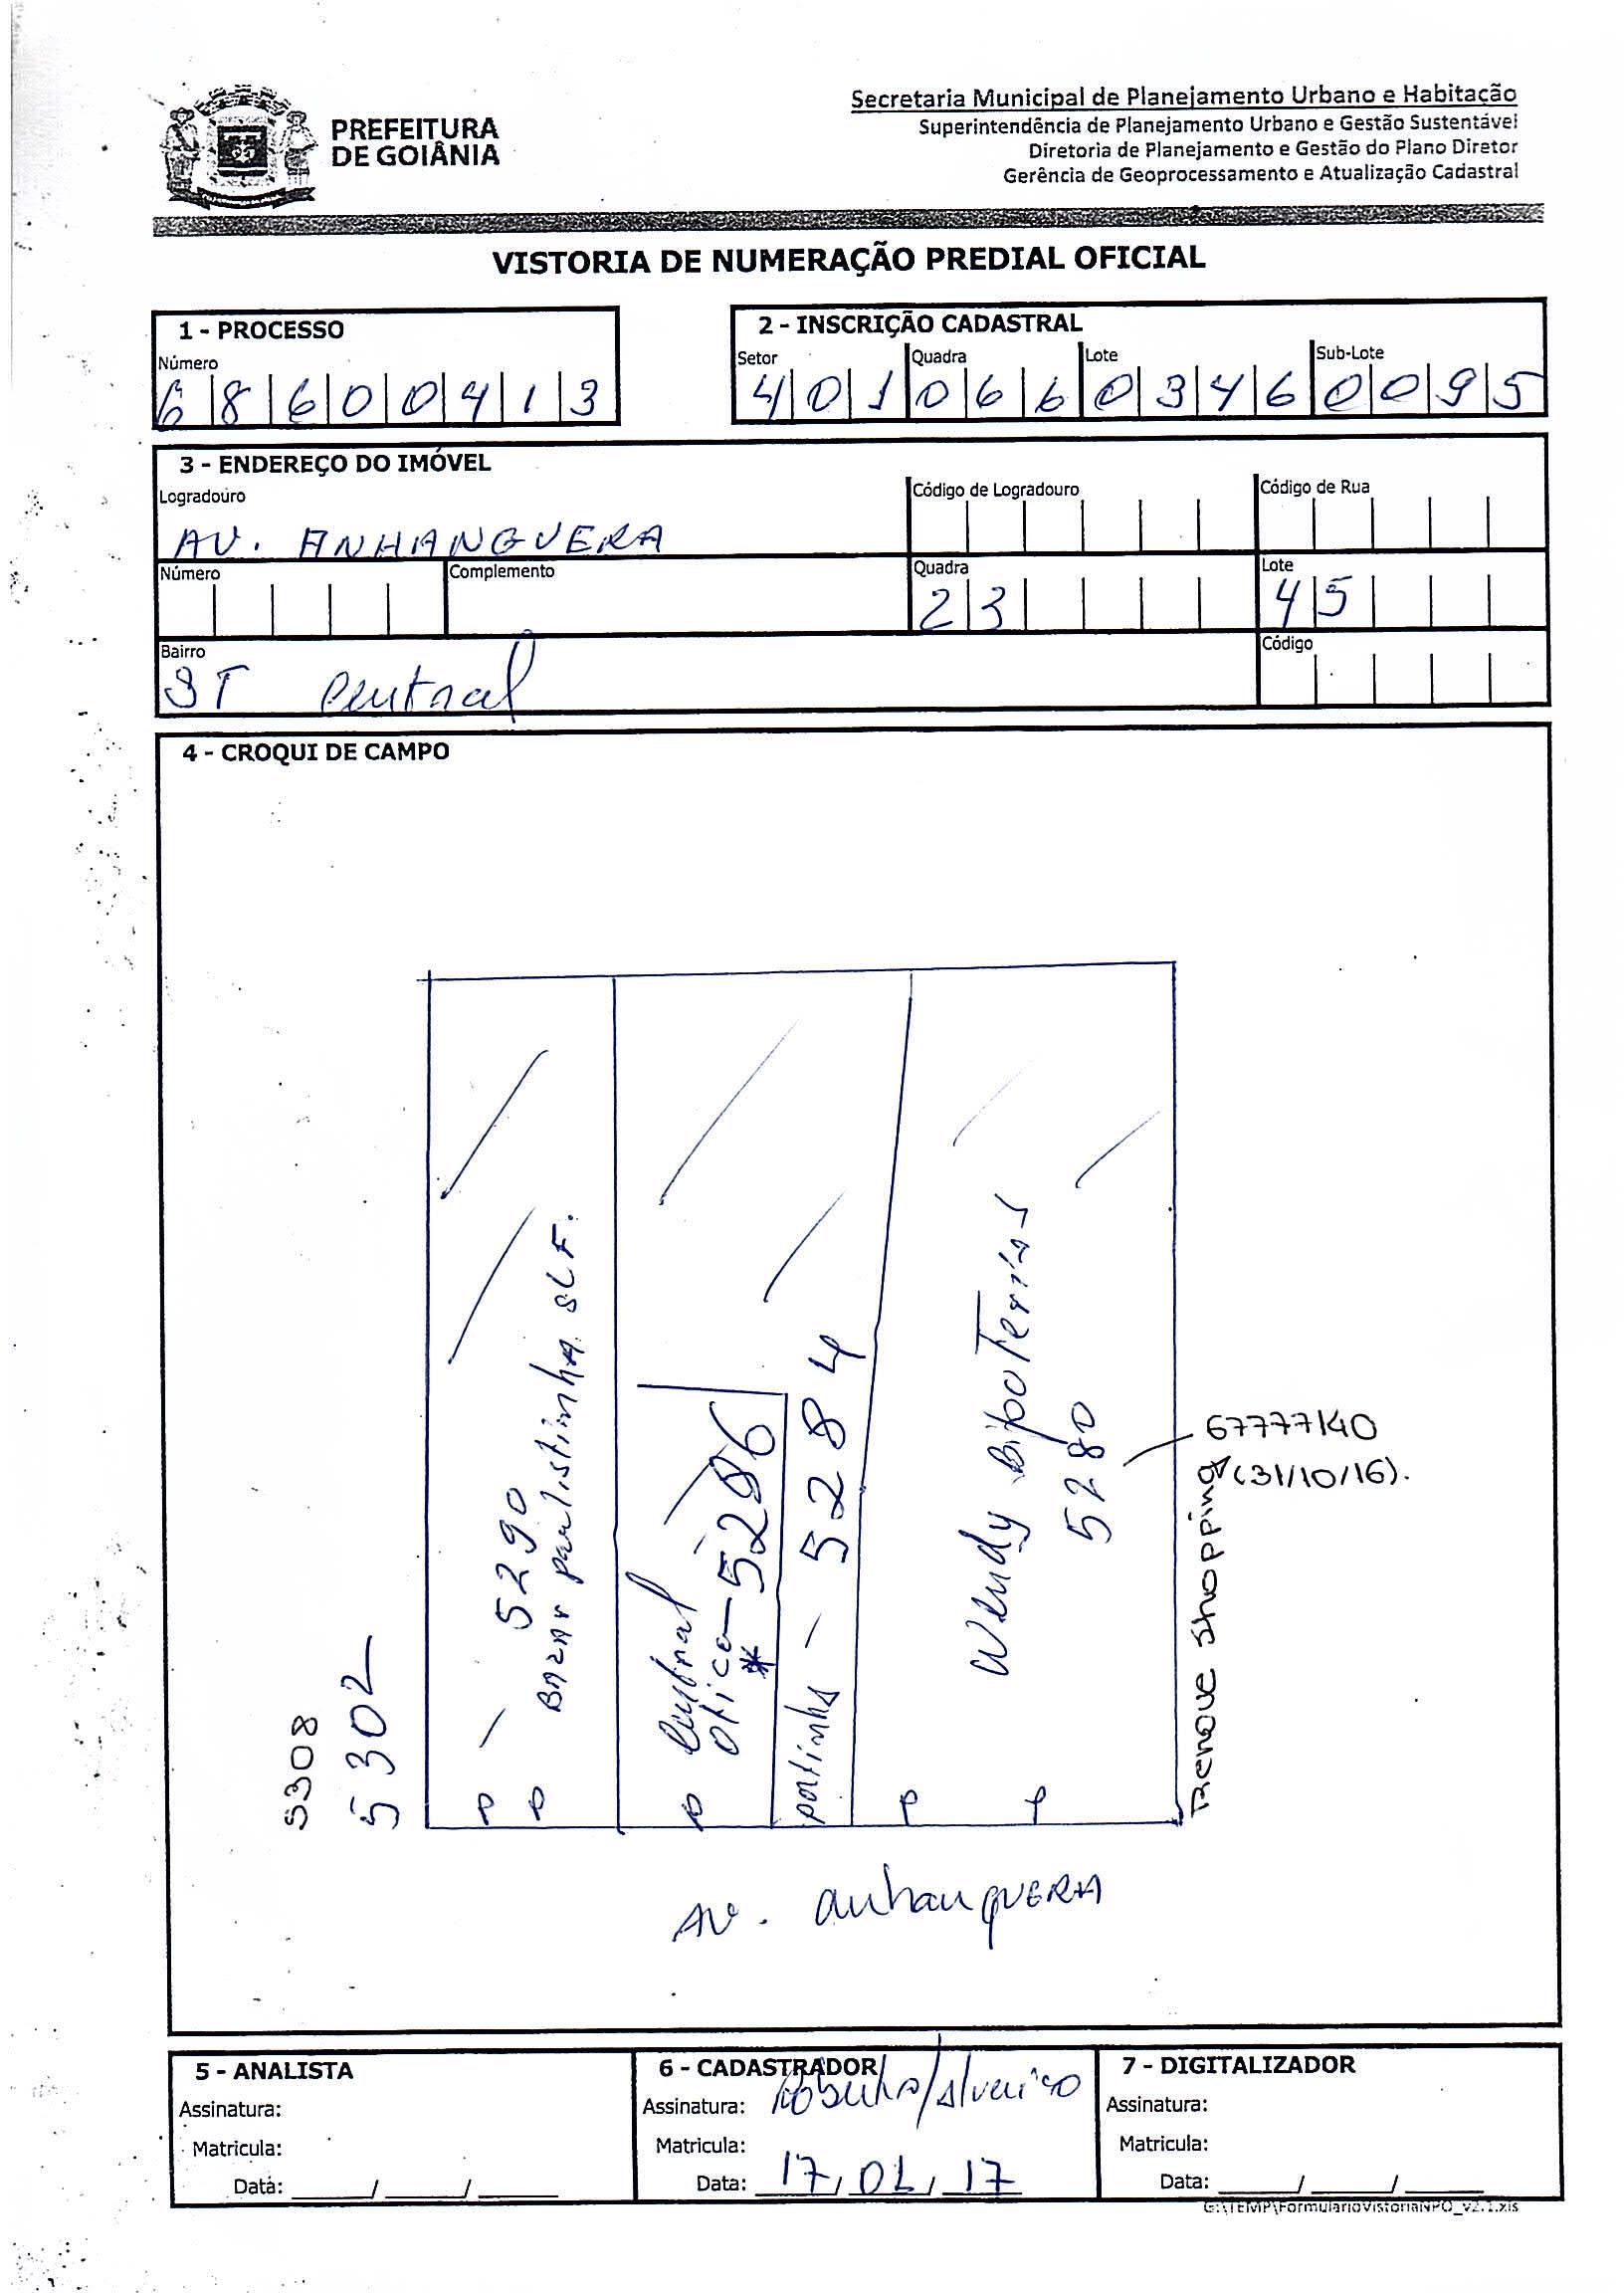 PREFEITURA
DE GOIÂNIA
Secretaria Municipal de Planejamento Urbano e Habitação
Superintendência de Planejamento Urbano e Gestão Sustentável
Diretoria de Planejamento e Gestão do Plano Diretor
Gerência de Geoprocessamento e Atualização Cadastral
VISTORIA DE NUMERAÇÃO PREDIAL OFICIAL
1 - PROCESSO
Número
6 8 6 0 0 4 1 3
2 - INSCRIÇÃO CADASTRAL
Setor Quadra Lote Sub-Lote
4 0 1 0 6 6 0 3 4 6 0 0 9 5
3 - ENDEREÇO DO IMÓVEL
Logradouro Código de Logradouro Código de Rua
AV. ANHANGUERA
Número Complemento Quadra Lote
2 3 4 5
Bairro Código
ST Central
4 - CROQUI DE CAMPO
5308
5302
5290
BAZAR paulistinha SLF.
Central
Otica - 5286
*
portinha - 5284
Wendy Bijouterias
5280
67777140
(31/10/16).
Renove Shopping
AV. anhanguera
5 - ANALISTA
Assinatura:
Matricula:
Data: ____/____/____
6 - CADASTRADOR
Assinatura:
Matricula:
Data: 17/01/17
7 - DIGITALIZADOR
Assinatura:
Matricula:
Data: ____/____/____
G:\TEMP\FormularioVistoriaNPO_v2.1.xls